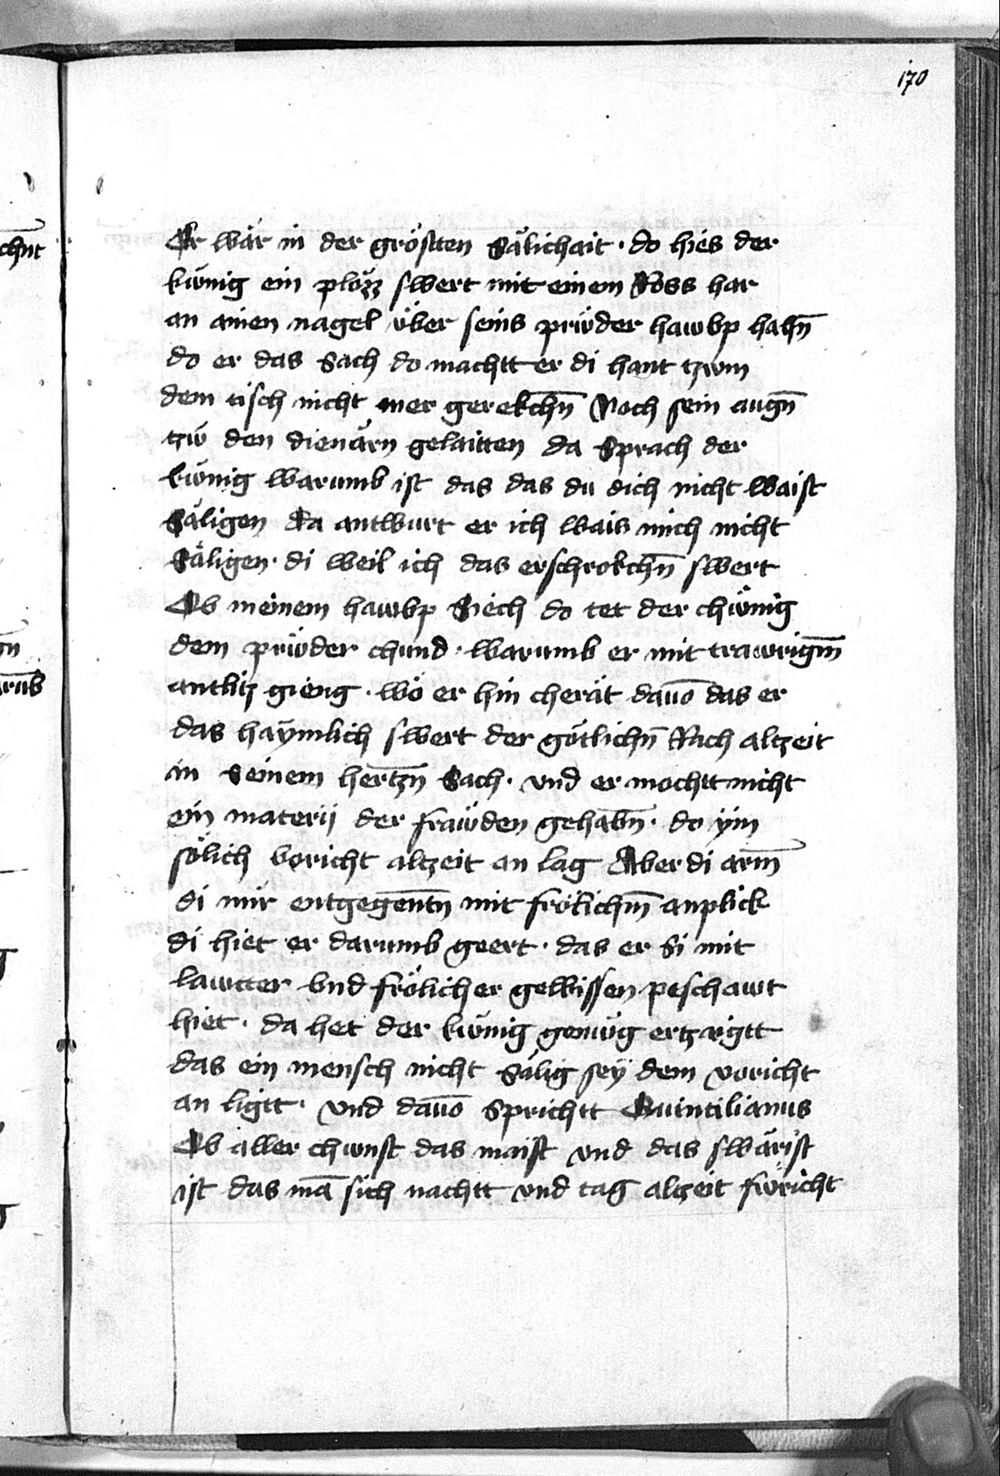 170
Er wår in der gröstten Sålichait · do hies der
kwnig ein plözz swert mit einem Ross har
an ainen nagel über seins prüder hawbp hahn̄
do er das sach do machtt er di hant tzwm
dem tisch nicht mer gerekchn̄ Noch sein augn̄
tzw den dienårn gelaitten da Sprach der
kwnig warumb ist das das du dich nicht waist
Såligen da antwurt er ich wais mich nicht
Såligen · di weil ich das erschrokchn̄ swert
Ob meinem hawbp Siech do tet der chẅnig
dem prüder chund · warumb er mit trawrigm̄
antlitz gieng · wo er hin cheråt dauō das er
das haÿmlich swert der götlichn̄ Rach altzeit
in Seinem hertzn̄ Sach · vnd er mochtt nicht
ein materij der fraẅden gehabn̄ · do ÿm
sölich voricht altzeit an lag Aber di arm̄
di mir entgegentn̄ mit frölichm̄ anplick
di hiet er darumb geert · das er Si mit
lawtter vnd frölicher gewissen peschawt
hiet · da het der kwnig genüg ertzaigtt
das ein mensch nicht Sålig seÿ dem voricht
an ligtt · vnd dauō Sprichtt Quintilianus
Ob aller chwnst das maist vnd das swårist
ist das mā sich nachtt vnd tag altzeit fwricht